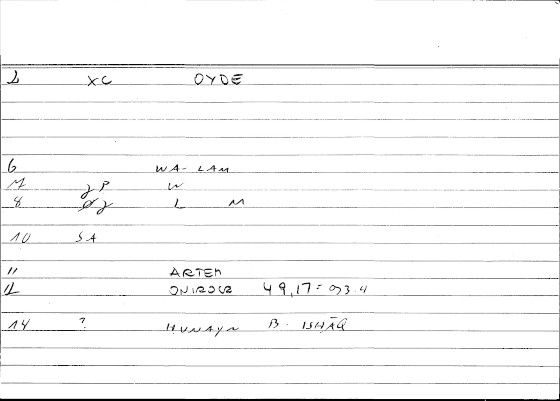 XC OYDE
6 WA- LAM
W
8 L M
10 SA
11 ARTEM
ONIROCR 49,17 = 93.4
14 ? HUNAYN B. ISHĀQ